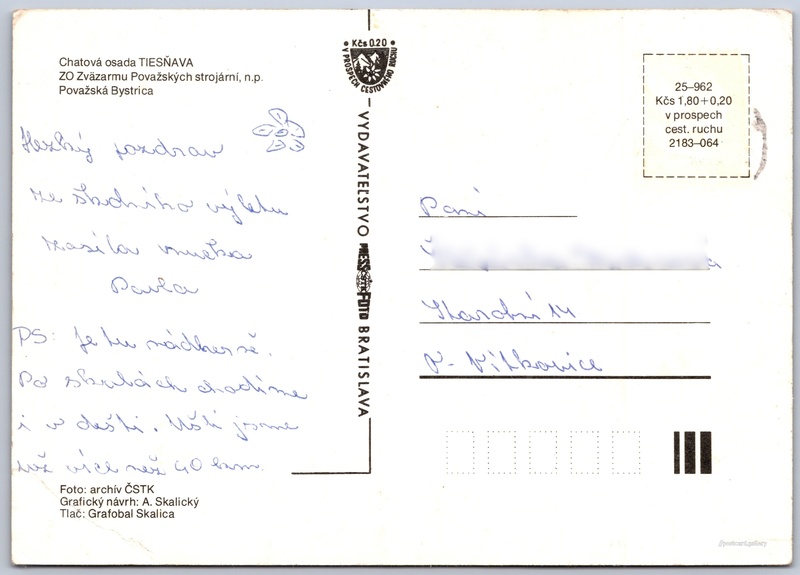 Chatová osada TIESŇAVA
ZO Zväzarmu Považských strojární, n.p.
Považská Bystrica
Hezký pozdrav
ze školního výletu
zasílá vnučka
Pavla
PS: Je tu nádherně.
Po skalách chodíme
i v dešti. Ušli jsme
už více než 40 km.
Foto: archív ČSTK
Grafický návrh: A. Skalický
Tlač: Grafobal Skalica
Kčs 0.20
V PROSPECH CESTOVNÉHO RUCHU
VYDAVATEĽSTVO PRESSFOTO BRATISLAVA
25–962
Kčs 1,80+0,20
v prospech
cest. ruchu
2183–064
Paní
Starobní 14
Vítkovice
@postcard.gallery